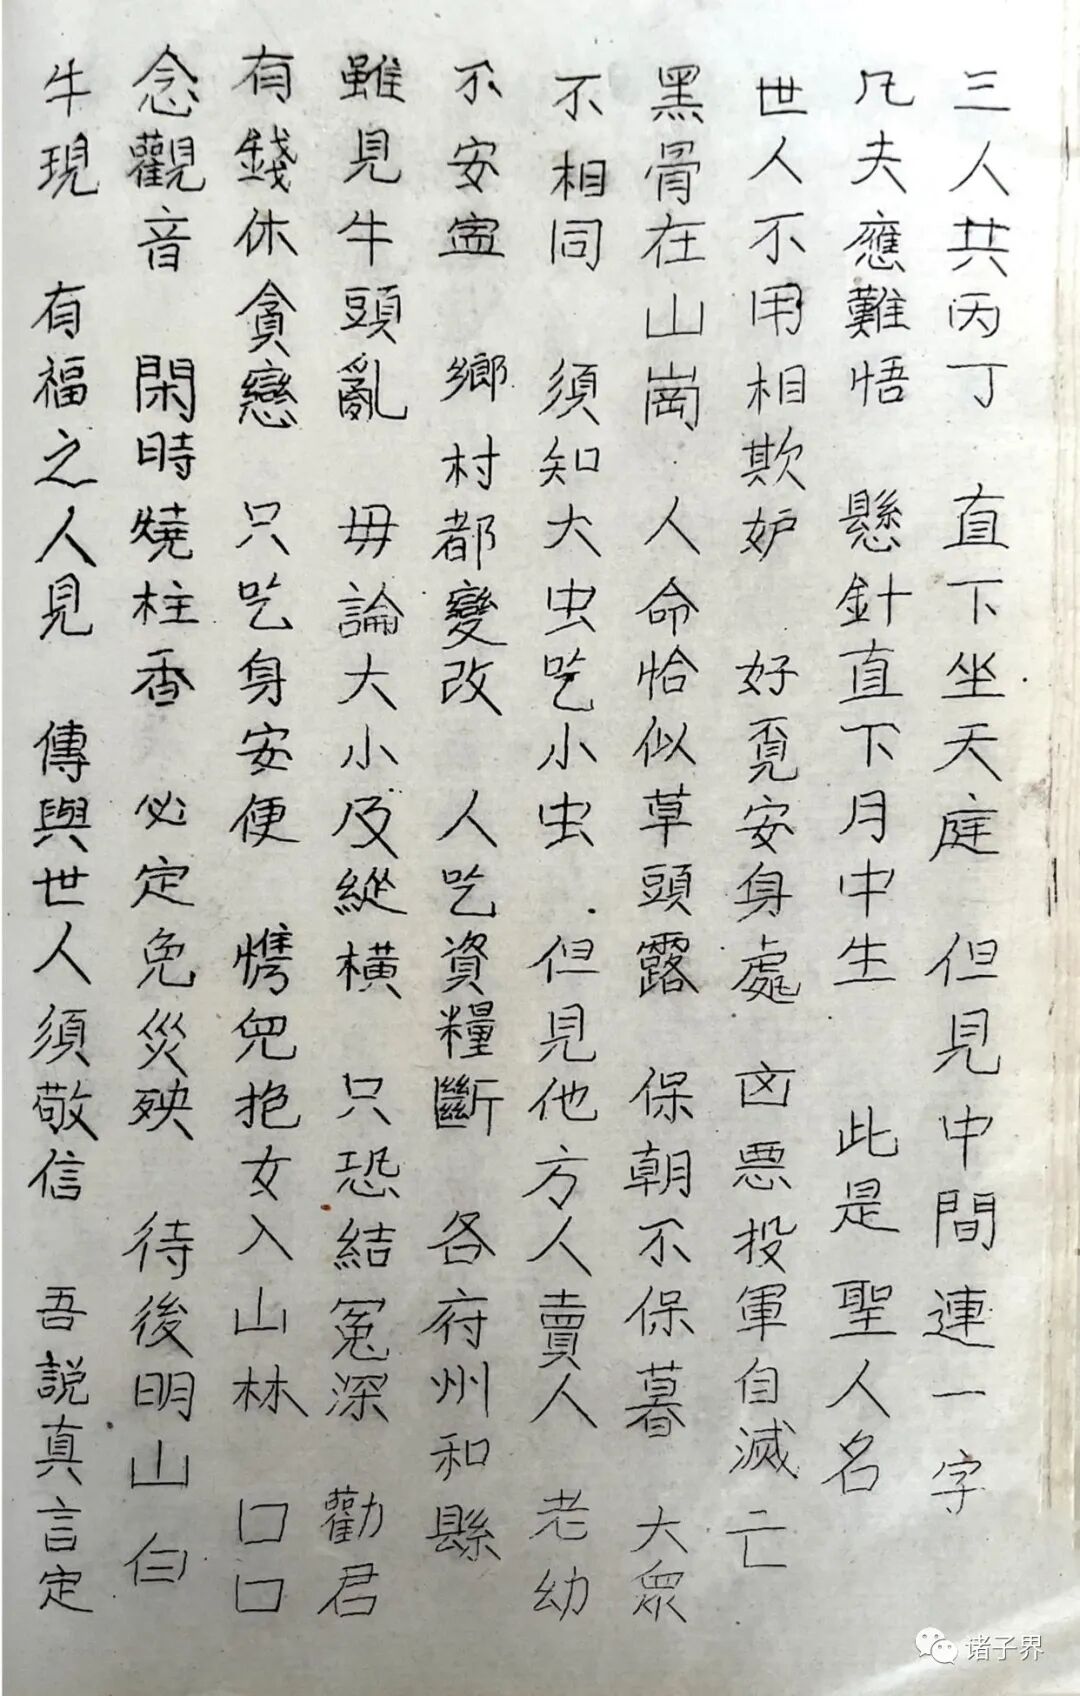 三人共丙丁　直下坐天庭　但見中間連一字
凡夫應難悟　懸針直下月中生　此是聖人名
世人不用相欺妒　好覓安身處　凶惡投軍自滅亡
黑骨在山崗　人命恰似草頭露　保朝不保暮　大眾
不相同　須知大虫吃小虫．但見他方人賣人　老幼
不安寍　鄉村都變改　人吃資糧斷　各府州和縣
雖見牛頭亂　毋論大小及縱橫　只恐結冤深　勸君
有錢休貪戀　只吃身安便　㩦兒抱女入山林　口口
念觀音　閑時燒柱香　必定免災殃　待後明山白
牛現　有福之人見　傳與世人須敬信　吾說真言定
诸子界